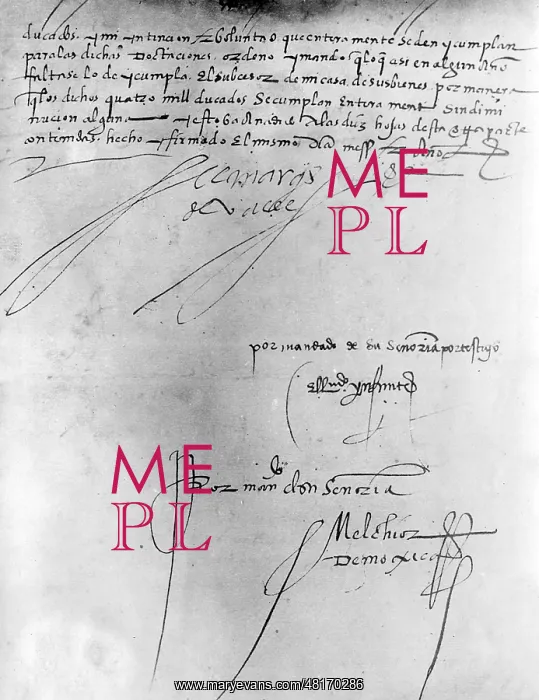 ducados. y mi yntincion z Voluntad que entera mente se den y cumplan
para las dichas Dotaciones. ordeno y mando q lo q asi en algun año
faltase lo de y cumpla. El subcesor de mi casa, de sus bienes. por manera
q los dichos quatro mill ducados Se cumplan Entera mente Sin dimi
nucion alguna
contenidas. hecho y firmado El mismo dia mes z año
el marqs
del valle
ME
PL
por mandado de su Señoria por testigo
ME
PL
Por man de su Señoria
Melchior
De moxica
www.maryevans.com/48170286